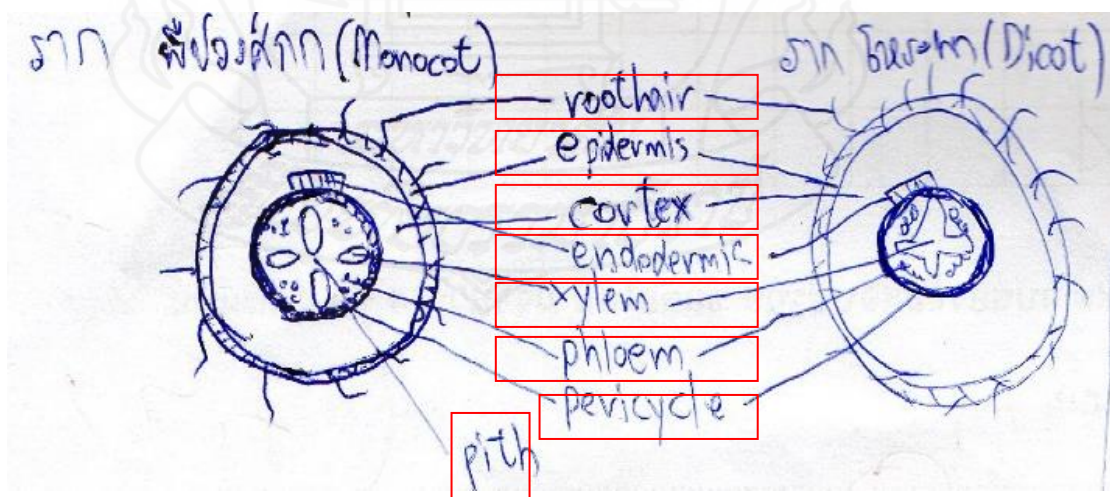 ราก พืชวงศ์กก (Monocot)
ราก โหระพา (Dicot)
roothair
epidermis
cortex
endodermis
xylem
phloem
pericycle
pith